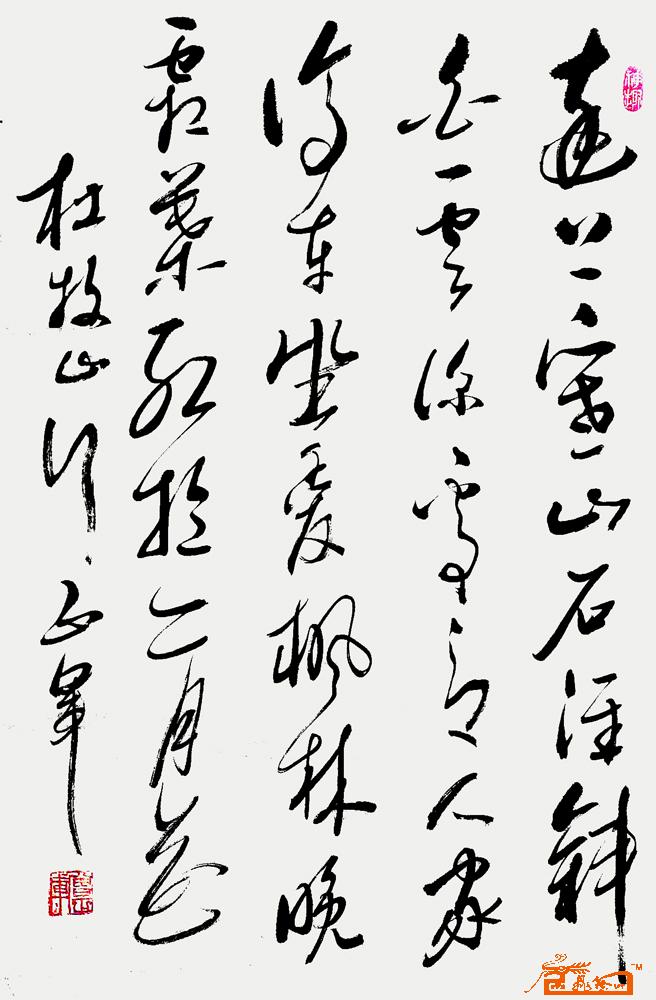 遠上寒山石径斜
白雲深處有人家
停車坐愛楓林晚
霜葉紅於二月花
杜牧山行